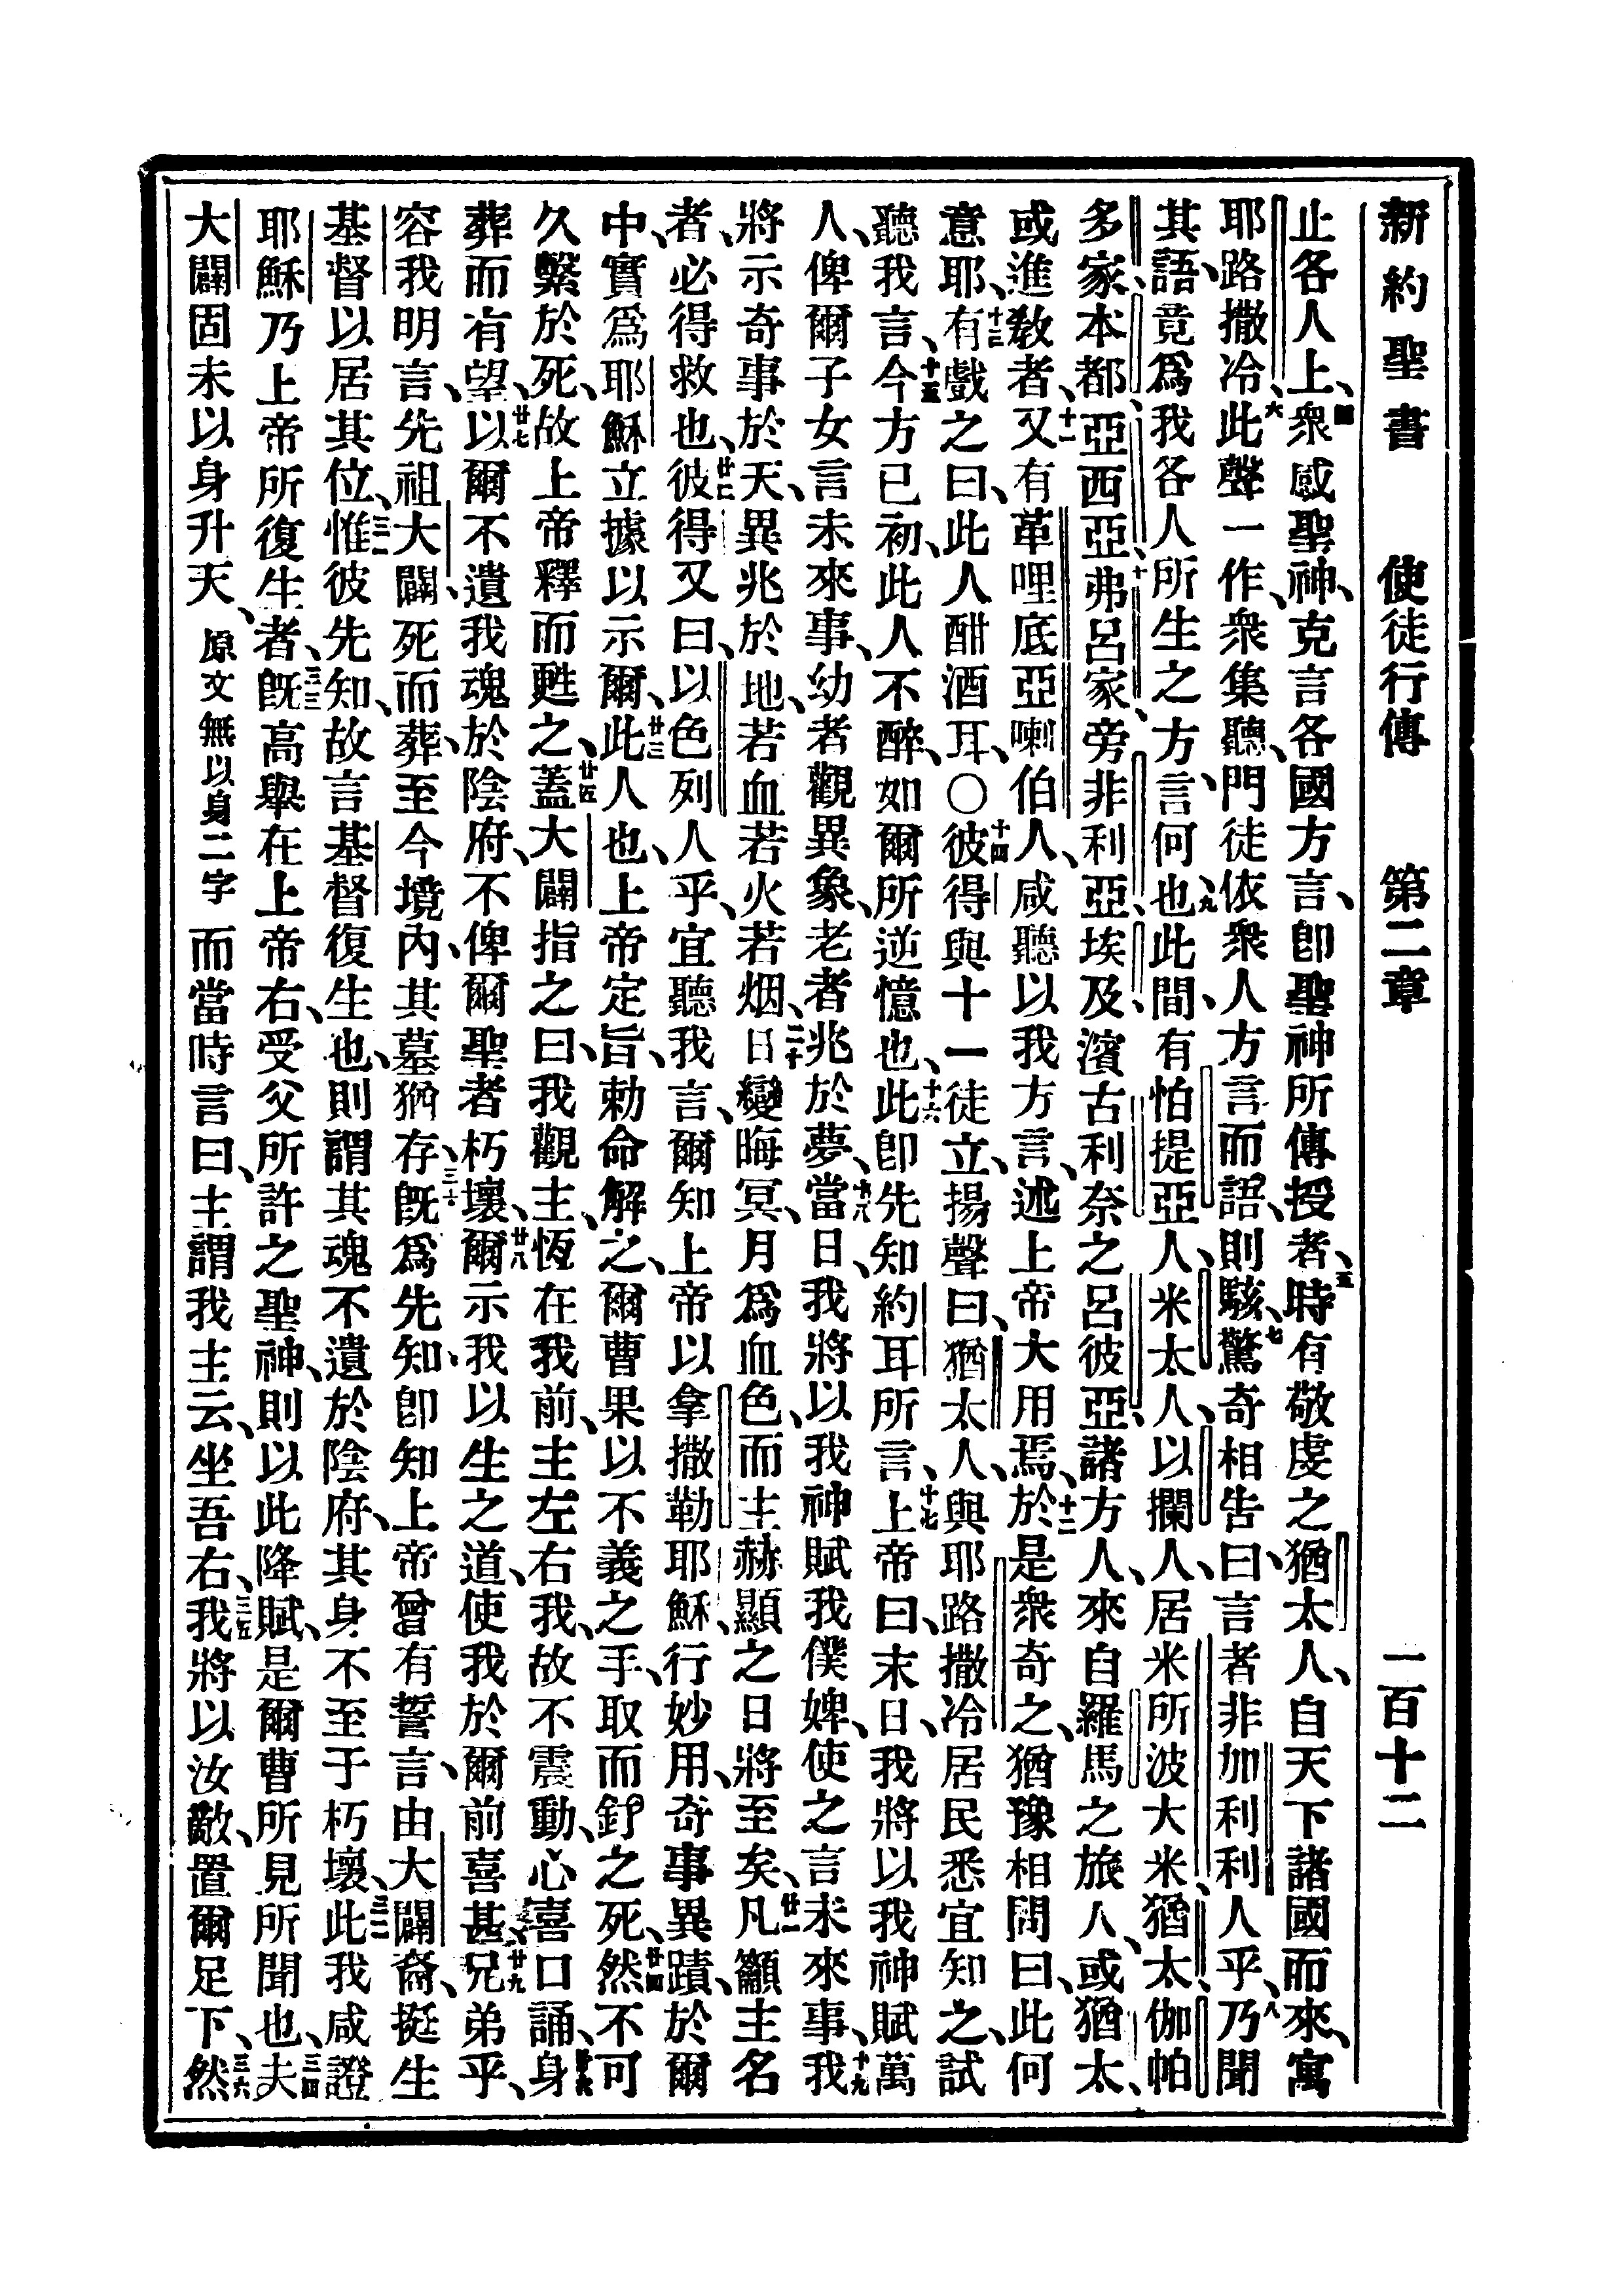 新約聖書 使徒行傳 第二章 一百十二
止各人上、四衆感聖神、克言各國方言、卽聖神所傳授者、五時有敬虔之猶太人、自天下諸國而來、寓
耶路撒冷、六此聲一作、衆集聽、門徒依衆人方言而語、則駭、七驚奇相告曰、言者非加利利人乎、八乃聞
其語、竟爲我各人所生之方言、何也、九此間、有怕提亞人、米太人、以攔人、居米所波大米、猶太、伽帕
多家、本都、亞西亞、十弗呂家、旁非利亞、埃及、濱古利奈之呂彼亞、諸方人、來自羅馬之旅人、或猶太、
或進敎者、十一又有革哩底亞喇伯人、咸聽以我方言、述上帝大用焉、十二於是衆奇之、猶豫相問曰、此何
意耶、十三有戲之曰、此人酣酒耳、○十四彼得與十一徒立、揚聲曰、猶太人、與耶路撒冷居民悉宜知之、試
聽我言、十五今方已初、此人不醉、如爾所逆憶也、十六此卽先知約耳所言、十七上帝曰、末日、我將以我神賦萬
人、俾爾子女、言未來事、幼者觀異象、老者兆於夢、十八當日、我將以我神賦我僕婢、使之言未來事、十九我
將示奇事於天、異兆於地、若血若火若烟、二十日變晦冥、月爲血色、而主赫顯之日將至矣、廿一凡籲主名
者、必得救也、廿二彼得又曰、以色列人乎、宜聽我言、爾知上帝以拿撒勒耶穌、行妙用、奇事異蹟、於爾
中、實爲耶穌立據以示爾、廿三此人也、上帝定旨、勅命解之、爾曹果以不義之手、取而釘之死、廿四然不可
久繫於死、故上帝釋而甦之、廿五蓋大闢指之曰、我觀主、恆在我前、主左右我、故不震動、廿六心喜口誦、身
葬而有望、廿七以爾不遺我魂於陰府、不俾爾聖者朽壞、廿八爾示我以生之道、使我於爾前喜甚、廿九兄弟乎、
容我明言、先祖大闢、死而葬、至今境內、其墓猶存、三十旣爲先知、卽知上帝曾有誓言、由大闢裔、挺生
基督以居其位、三一惟彼先知、故言基督復生也、則謂其魂不遺於陰府、其身不至于朽壞、三二此我咸證
耶穌乃上帝所復生者、三三旣高舉在上帝右、受父所許之聖神、則以此降賦、是爾曹所見所聞也、三四夫
大闢固未以身升天、原文無以身二字而當時言曰、主謂我主云、坐吾右、三五我將以汝敵、置爾足下、三六然